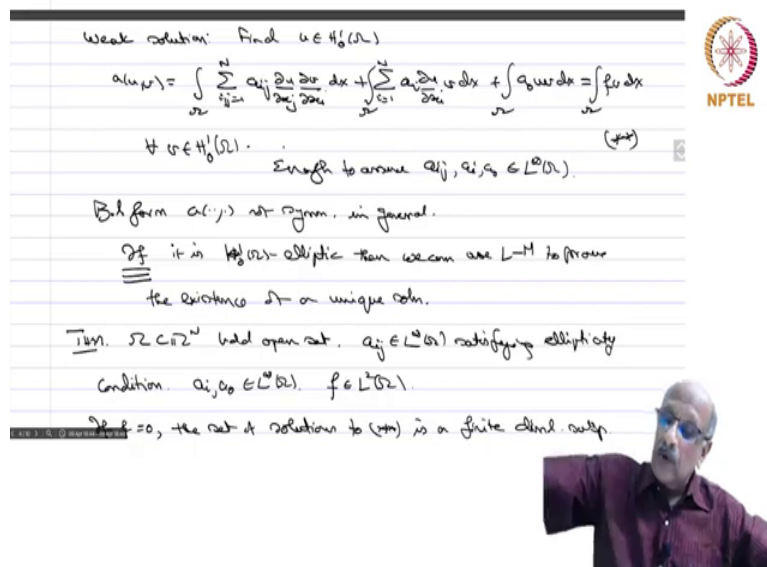 Weak solution: Find u ∈ H¹₀(Ω)
a(u,v) = ∫_Ω Σ_{i,j=1}^N a_ij ∂u/∂x_j ∂v/∂x_i dx + ∫_Ω Σ_{i=1}^N a_i ∂u/∂x_i v dx + ∫_Ω a₀uv dx = ∫_Ω fv dx
∀ v ∈ H¹₀(Ω). (**)
Enough to assume a_ij, a_i, a₀ ∈ L^∞(Ω).
Bil form a(·,·) not symm. in general.
If it is H¹₀(Ω)-elliptic then we can use L-M to prove
the existence of a unique soln.
Thm. Ω ⊂ ℝ^N bdd open set. a_ij ∈ L^∞(Ω) satisfying ellipticity
condition. a_i, a₀ ∈ L^∞(Ω). f ∈ L²(Ω).
If f = 0, the set of solutions to (**) is a finite diml. subsp.
NPTEL